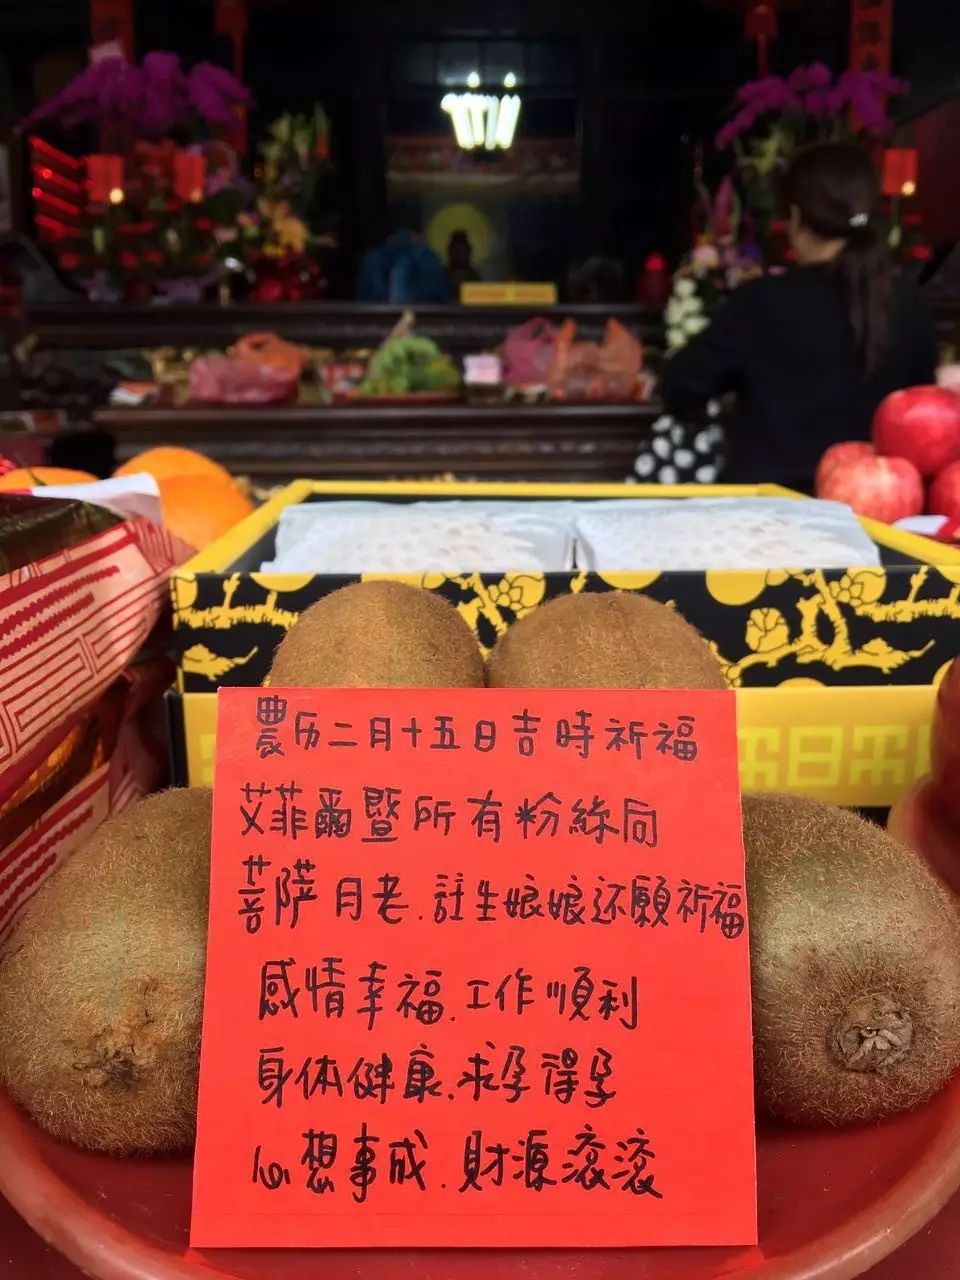 農历二月十五日吉時祈福
艾菲爾暨所有粉絲同
菩薩月老.註生娘娘还願祈福
感情幸福.工作順利
身体健康.求孕得孕
心想事成.財源滾滾